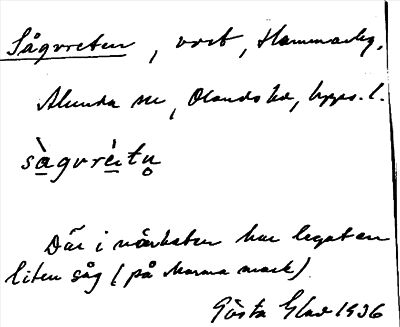 Sågvreten, vret, Hammarby,
Alunda sn, Olands hd, Upps. l.
sàgvrèitn̥
Där i närheten har legat en
liten såg (på Marma mark).
Gösta Glad 1936